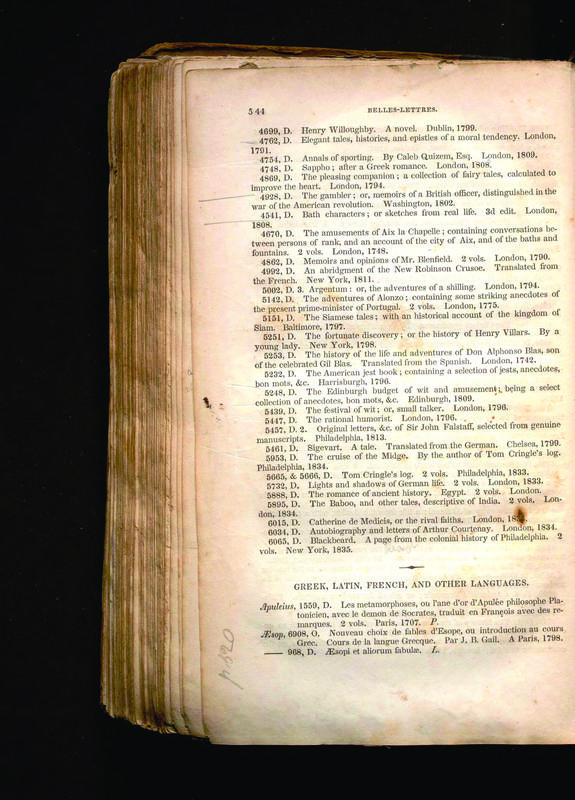 544
BELLES-LETTRES.
4699, D. Henry Willoughby. A novel. Dublin, 1799.
4762, D. Elegant tales, histories, and epistles of a moral tendency. London,
1791.
4754, D. Annals of sporting. By Caleb Quizem, Esq. London, 1809.
4748, D. Sappho; after a Greek romance. London, 1808.
4869, D. The pleasing companion; a collection of fairy tales, calculated to
improve the heart. London, 1794.
4928, D. The gambler; or, memoirs of a British officer, distinguished in the
war of the American revolution. Washington, 1802.
4541, D. Bath characters; or sketches from real life. 3d edit. London,
1808.
4670, D. The amusements of Aix la Chapelle; containing conversations be-
tween persons of rank, and an account of the city of Aix, and of the baths and
fountains. 2 vols. London, 1748.
4862, D. Memoirs and opinions of Mr. Blenfield. 2 vols. London, 1790.
4992, D. An abridgment of the New Robinson Crusoe. Translated from
the French. New York, 1811.
5002, D. 3. Argentum: or, the adventures of a shilling. London, 1794.
5142, D. The adventures of Alonzo; containing some striking anecdotes of
the present prime-minister of Portugal. 2 vols. London, 1775.
5151, D. The Siamese tales; with an historical account of the kingdom of
Siam. Baltimore, 1797.
5251, D. The fortunate discovery; or the history of Henry Villars. By a
young lady. New York, 1798.
5253, D. The history of the life and adventures of Don Alphonso Blas, son
of the celebrated Gil Blas. Translated from the Spanish. London, 1742.
5232, D. The American jest book; containing a selection of jests, anecdotes,
bon mots, &c. Harrisburgh, 1796.
5248, D. The Edinburgh budget of wit and amusement; being a select
collection of anecdotes, bon mots, &c. Edinburgh, 1809.
5439, D. The festival of wit; or, small talker. London, 1796.
5447, D. The rational humorist. London, 1796.
5457, D. 2. Original letters, &c. of Sir John Falstaff, selected from genuine
manuscripts. Philadelphia, 1813.
5461, D. Sigevart. A tale. Translated from the German. Chelsea, 1799.
5953, D. The cruise of the Midge. By the author of Tom Cringle's log.
Philadelphia, 1834.
5665, & 5666, D. Tom Cringle's log. 2 vols. Philadelphia, 1833.
5732, D. Lights and shadows of German life. 2 vols. London, 1833.
5888, D. The romance of ancient history. Egypt. 2 vols. London.
5895, D. The Baboo, and other tales, descriptive of India. 2 vols. Lon-
don, 1834.
6015, D. Catherine de Medicis, or the rival faiths. London,
6034, D. Autobiography and letters of Arthur Courtenay. London, 1834.
6065, D. Blackbeard. A page from the colonial history of Philadelphia. 2
vols. New York, 1835.
GREEK, LATIN, FRENCH, AND OTHER LANGUAGES.
Apuleius, 1559, D. Les metamorphoses, ou l'ane d'or d'Apulée philosophe Pla-
tonicien, avec le demon de Socrates, traduit en François avec des re-
marques. 2 vols. Paris, 1707. P.
Æsop, 6908, O. Nouveau choix de fables d'Esope, ou introduction au cours
Grec. Cours de la langue Grecque. Par J. B. Gail. A Paris, 1798.
—— 968, D. Æsopi et aliorum fabulæ. L.